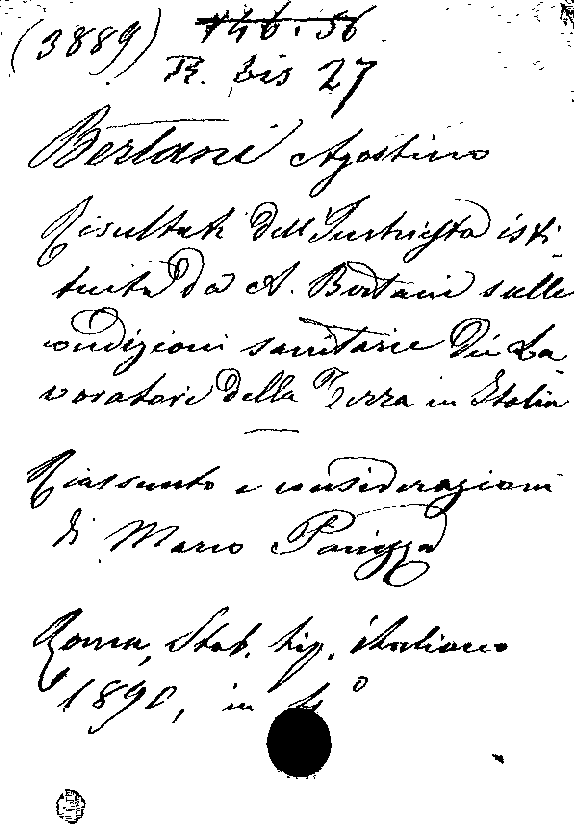 (3889) 746.56
R. bis 27
Bertani Agostino
Risultati dell'Inchiesta isti
tuita da A. Bertani sulle
condizioni sanitarie dei La
voratori della Terra in Italia
Riassunto e considerazioni
di Mario Panizza
Roma, Stab. tip. italiano
1890, in 4°